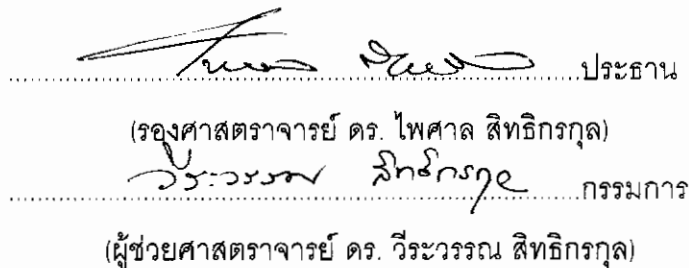 ไพศาล สิทธิกรกุล ประธาน
(รองศาสตราจารย์ ดร. ไพศาล สิทธิกรกุล)
วีระวรรณ สิทธิกรกุล กรรมการ
(ผู้ช่วยศาสตราจารย์ ดร. วีระวรรณ สิทธิกรกุล)